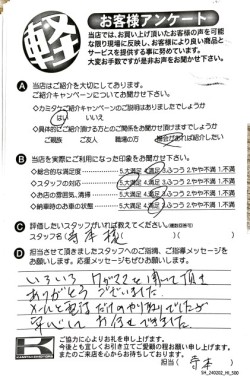 軽
お客様アンケート
当店では、お買い上げ頂いたお客様の声を可能
な限り現場に反映し、お客様により良い商品と
サービスを提供する事に努めています。
大変お手数ですが是非お声をお聞かせ下さい。
A 当店はご紹介を大切にしております。
ご紹介キャンペーンについてお聞かせ下さい。
◇カミタケご紹介キャンペーンのご説明はありましたでしょうか
はい いいえ
◇具体的にご紹介頂ける方との関係をお聞かせ頂けますでしょうか
ご親族 ご友人 職場の方 機会があれば紹介したい
B 当店を実際にご利用になった印象をお聞かせ下さい。
◇総合的な満足度 5.大満足 4.満足 3.ふつう 2.やや不満 1.不満
◇スタッフの対応 5.大満足 4.満足 3.ふつう 2.やや不満 1.不満
◇お店の雰囲気、清掃 5.大満足 4.満足 3.ふつう 2.やや不満 1.不満
◇納車時のお車の状態 5.大満足 4.満足 3.ふつう 2.やや不満 1.不満
C 評価したいスタッフがいれば教えてください。(複数回答可)
スタッフ名( 寺本 様 )( )
D 担当させて頂きましたスタッフへのご指摘、ご指導メッセージを
お願いします。応援メッセージもぜひお願いします。
いろいろ
ありがとうございました。
メールと電話だけのやり取りでしたが
ご協力に心よりお礼を申し上げます。
今後とも宜しくお引き立てご愛顧の程お願い申し上げます。
またのご来店を心からお待ちしております。
担当( 寺本 )
SH_240202_HI_500